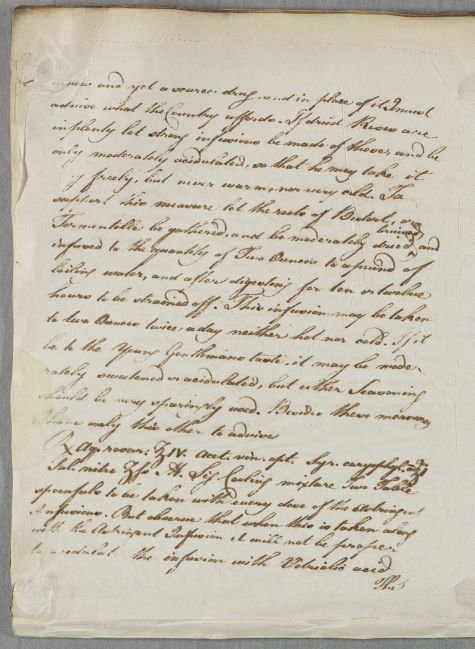 a new and yet a scarce drug, and in place of it I must
advise what the Country affords. If dried Roses are
in plenty let strong infusions be made of these, and be
only moderately acidulated, so that he may take it
freely, but never warm, nor very cold. To
support this measure let the roots of Bistort, or
Tormentille be gathered and be moderately dried and
infused to the quantity of Two Ounces to a pound of
boiling water, and after digesting for ten or twelve
hours to be strained off. This infusion may be taken
to two Ounces twice a day neither hot nor cold. If it
be to the Young Gentlemans taste, it may be mode-
rately sweetened or acidulated, but either Seasoning
should be very sparingly used. Beside these measures
I have only this other to advise
℞ Aq. ℥IV. Acet. vin. opt. Syr. caryophyl. aa ℥j
Sal. nitri ʒſs. M. Sig Cooling mixture Two Table
spoonfuls to be taken with every dose of the Astringent
Infusions. But observe that when this is taken along
with the Astringent Infusion it will not be proper
to acidulate the infusion with Vitriolic acid
The